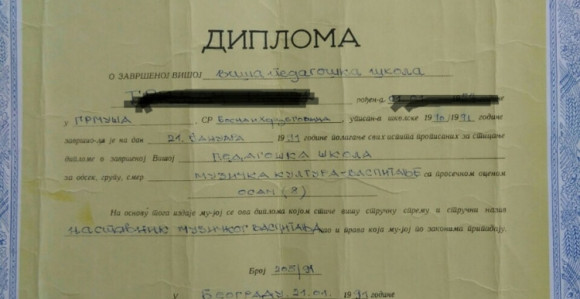 ДИПЛОМА
О ЗАВРШЕНОЈ ВИШОЈ Виша Педагошка школа
рођен-а
у СР Босна и Херцеговина уписана школске 1990/1991 године
завршио-ла је на дан 21. Јануара 1991 године полагање свих испита прописаних за стицање
дипломе о завршеној Вишој ПЕДАГОШКА ШКОЛА
за одсек, групу, смер МУЗИЧКА КУЛТУРА-ВАСПИТАЊЕ са просечном оценом
ОСАМ (8)
На основу тога издаје му-јој се ова диплома којом стиче вишу стручну спрему и стручни назив
НАСТАВНИК МУЗИЧКОГ ВАСПИТАЊА као и права која му-јој по законима припадају.
Број /91
У БЕОГРАДУ, 21.01. 1991 године